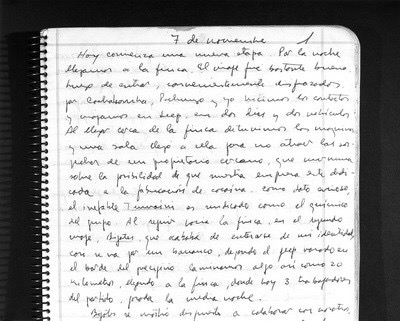 7 de noviembre 1
Hoy comienza una nueva etapa. Por la noche
llegamos a la finca. El viaje fue bastante bueno.
Luego de entrar, convenientemente disfrazados,
por Cochabamba, Pachungo y yo hicimos los contactos
y viajamos en jeep, en dos días y dos vehículos.
Al llegar cerca de la finca detuvimos las máquinas
y una sola llegó a ella para no atraer las sos-
pechas de un propietario cercano, que murmura
sobre la posibilidad de que nuestra empresa esté dedi-
cada a la fabricación de cocaína. Como dato curioso,
el inefable Tumaini es indicado como el químico
del grupo. Al seguir hacia la finca, en el segundo
viaje, Bigotes, que acababa de enterarse de mi identidad,
casi se va por un barranco, dejando el jeep varado en
el borde del precipicio. Caminamos algo así como 20
kilómetros, llegando a la finca, donde hay 3 trabajadores
del partido, pasada la media noche.
Bigotes se mostró dispuesto a colaborar con nosotros,